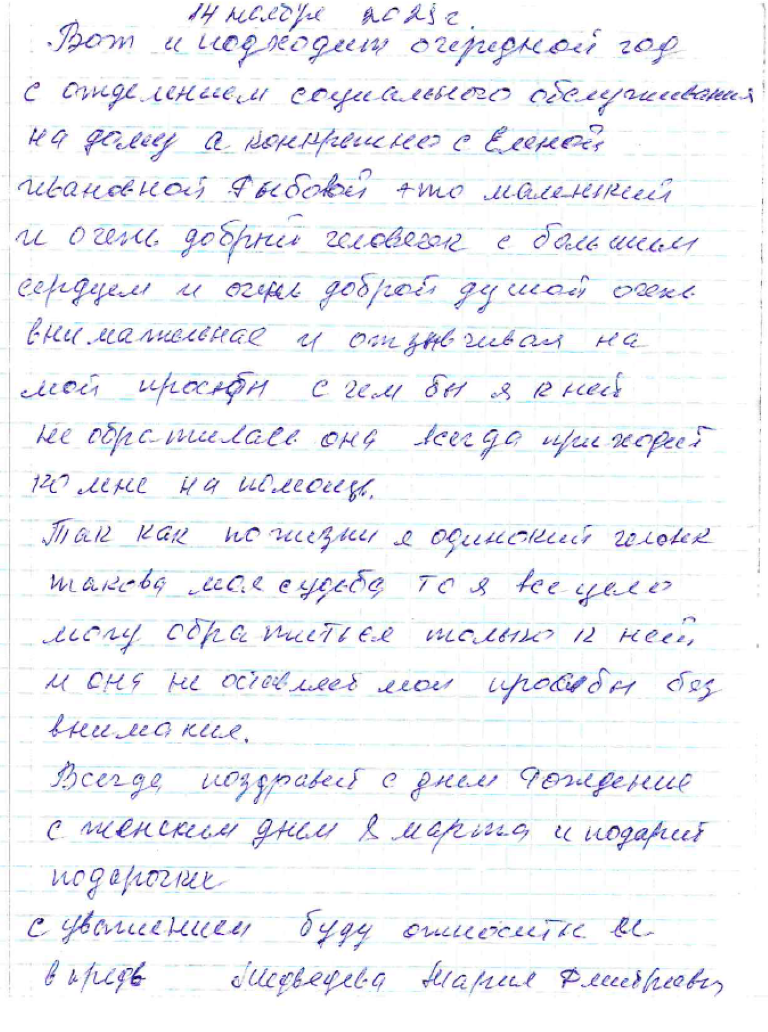 14 ноября 2023 г.
Вот и подходит очередной год
с отделением социального обслуживания
на дому а конкретно с Еленой
ивановной Рыбовой это маленький
и очень добрый человечек с большим
сердцем и очень доброй душой очень
внимательная и отзывчивая на
мои просьбы с чем бы я к ней
не обратилась она всегда приходит
ко мне на помощь.
Так как по жизни я одинокий человек
такова моя судьба то я всецело
могу обратиться только к ней
и она не оставляет мои просьбы без
внимания.
Всегда поздравит с днем Рождение
с женским днем 8 марта и подарит
подарочик
с уважением буду относится
вперёд Медведева Мария Дмитриевна